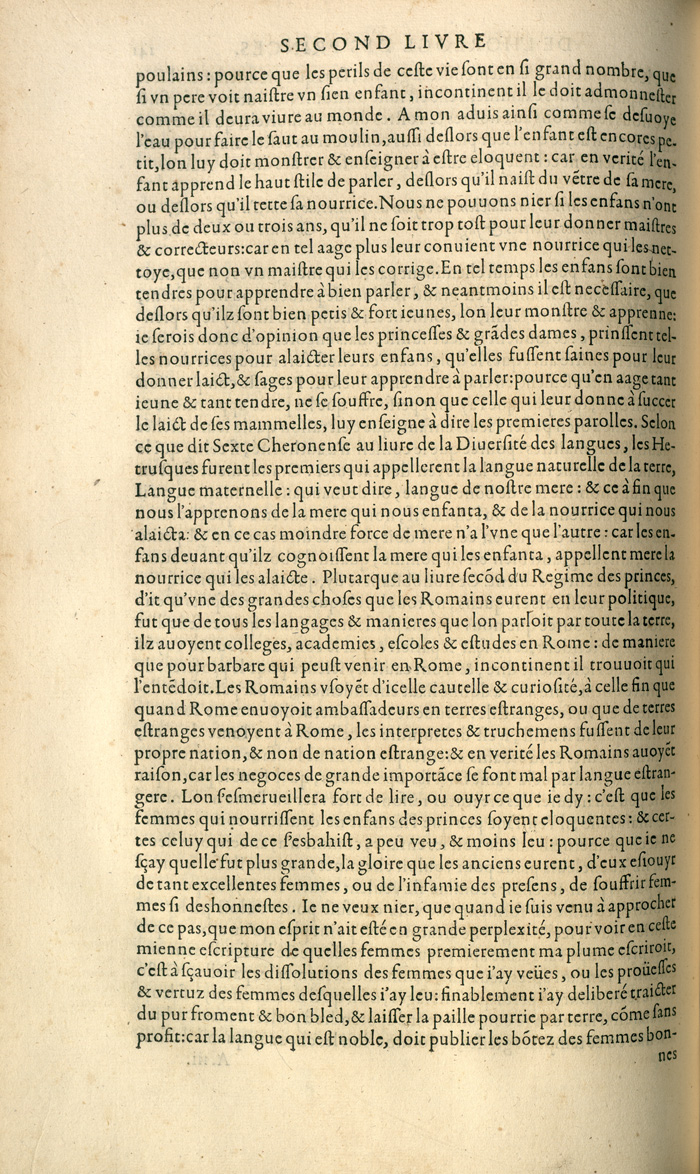 SECOND LIVRE
poulains : pource que les perils de ceſte vie ſont en ſi grand nombre, que
ſi vn pere voit naiſtre vn ſien enfant, incontinent il le doit admonneſter
comme il deura viure au monde. A mon aduis ainſi comme ſe deſuoye
l'eau pour faire le ſaut au moulin, auſſi deſlors que l'enfant eſt encores pe-
tit, lon luy doit monſtrer & enſeigner à eſtre eloquent : car en verité l'en-
fant apprend le haut ſtile de parler, deſlors qu'il naiſt du vẽtre de ſa mere,
ou deſlors qu'il tette ſa nourrice. Nous ne pouuons nier ſi les enfans n'ont
plus de deux ou trois ans, qu'il ne ſoit trop toſt pour leur donner maiſtres
& correcteurs: car en tel aage plus leur conuient vne nourrice qui les net-
toye, que non vn maiſtre qui les corrige. En tel temps les enfans ſont bien
tendres pour apprendre à bien parler, & neantmoins il eſt neceſſaire, que
deſlors qu'ilz ſont bien petis & fort ieunes, lon leur monſtre & apprenne:
ie ſerois donc d'opinion que les princeſſes & grãdes dames, prinſſent tel-
les nourrices pour alaicter leurs enfans, qu'elles fuſſent ſaines pour leur
donner laict, & ſages pour leur apprendre à parler: pource qu'en aage tant
ieune & tant tendre, ne ſe ſouffre, ſinon que celle qui leur donne à ſuccer
le laict de ſes mammelles, luy enſeigne à dire les premieres parolles. Selon
ce que dit Sexte Cheronenſe au liure de la Diuerſité des langues, les He-
truſques furent les premiers qui appellerent la langue naturelle de la terre,
Langue maternelle : qui veut dire, langue de noſtre mere : & ce à fin que
nous l'apprenons de la mere qui nous enfanta, & de la nourrice qui nous
alaicta: & en ce cas moindre force de mere n'a l'vne que l'autre : car les en-
fans deuant qu'ilz cognoiſſent la mere qui les enfanta, appellent mere la
nourrice qui les alaicte. Plutarque au liure ſecõd du Regime des princes,
d'it qu'vne des grandes choſes que les Romains eurent en leur politique,
fut que de tous les langages & manieres que lon parloit par toute la terre,
ilz auoyent colleges, academies, eſcoles & eſtudes en Rome : de maniere
que pour barbare qui peuſt venir en Rome, incontinent il trouuoit qui
l'entẽdoit. Les Romains vſoyẽt d'icelle cautelle & curioſité, à celle fin que
quand Rome enuoyoit ambaſſadeurs en terres eſtranges, ou que de terres
eſtranges venoyent à Rome, les interpretes & truchemens fuſſent de leur
propre nation, & non de nation eſtrange: & en verité les Romains auoyẽt
raiſon, car les negoces de grande importãce ſe font mal par langue eſtran-
gere. Lon ſ'eſmerueillera fort de lire, ou ouyr ce que ie dy : c'eſt que les
femmes qui nourriſſent les enfans des princes ſoyent eloquentes : & cer-
tes celuy qui de ce ſ'esbahiſt, a peu veu, & moins leu : pource que ie ne
ſçay quelle fut plus grande, la gloire que les anciens eurent, d'eux eſiouyr
de tant excellentes femmes, ou de l'infamie des preſens, de ſouffrir fem-
mes ſi deshonneſtes. Ie ne veux nier, que quand ie ſuis venu à approcher
de ce pas, que mon eſprit n'ait eſté en grande perplexité, pour voir en ceſte
mienne eſcripture de quelles femmes premierement ma plume eſcriroit,
c'eſt à ſçauoir les diſſolutions des femmes que i'ay veües, ou les proüeſſes
& vertuz des femmes deſquelles i'ay leu: finablement i'ay deliberé traicter
du pur froment & bon bled, & laiſſer la paille pourrie par terre, cõme ſans
profit: car la langue qui eſt noble, doit publier les bõtez des femmes bon-
nes